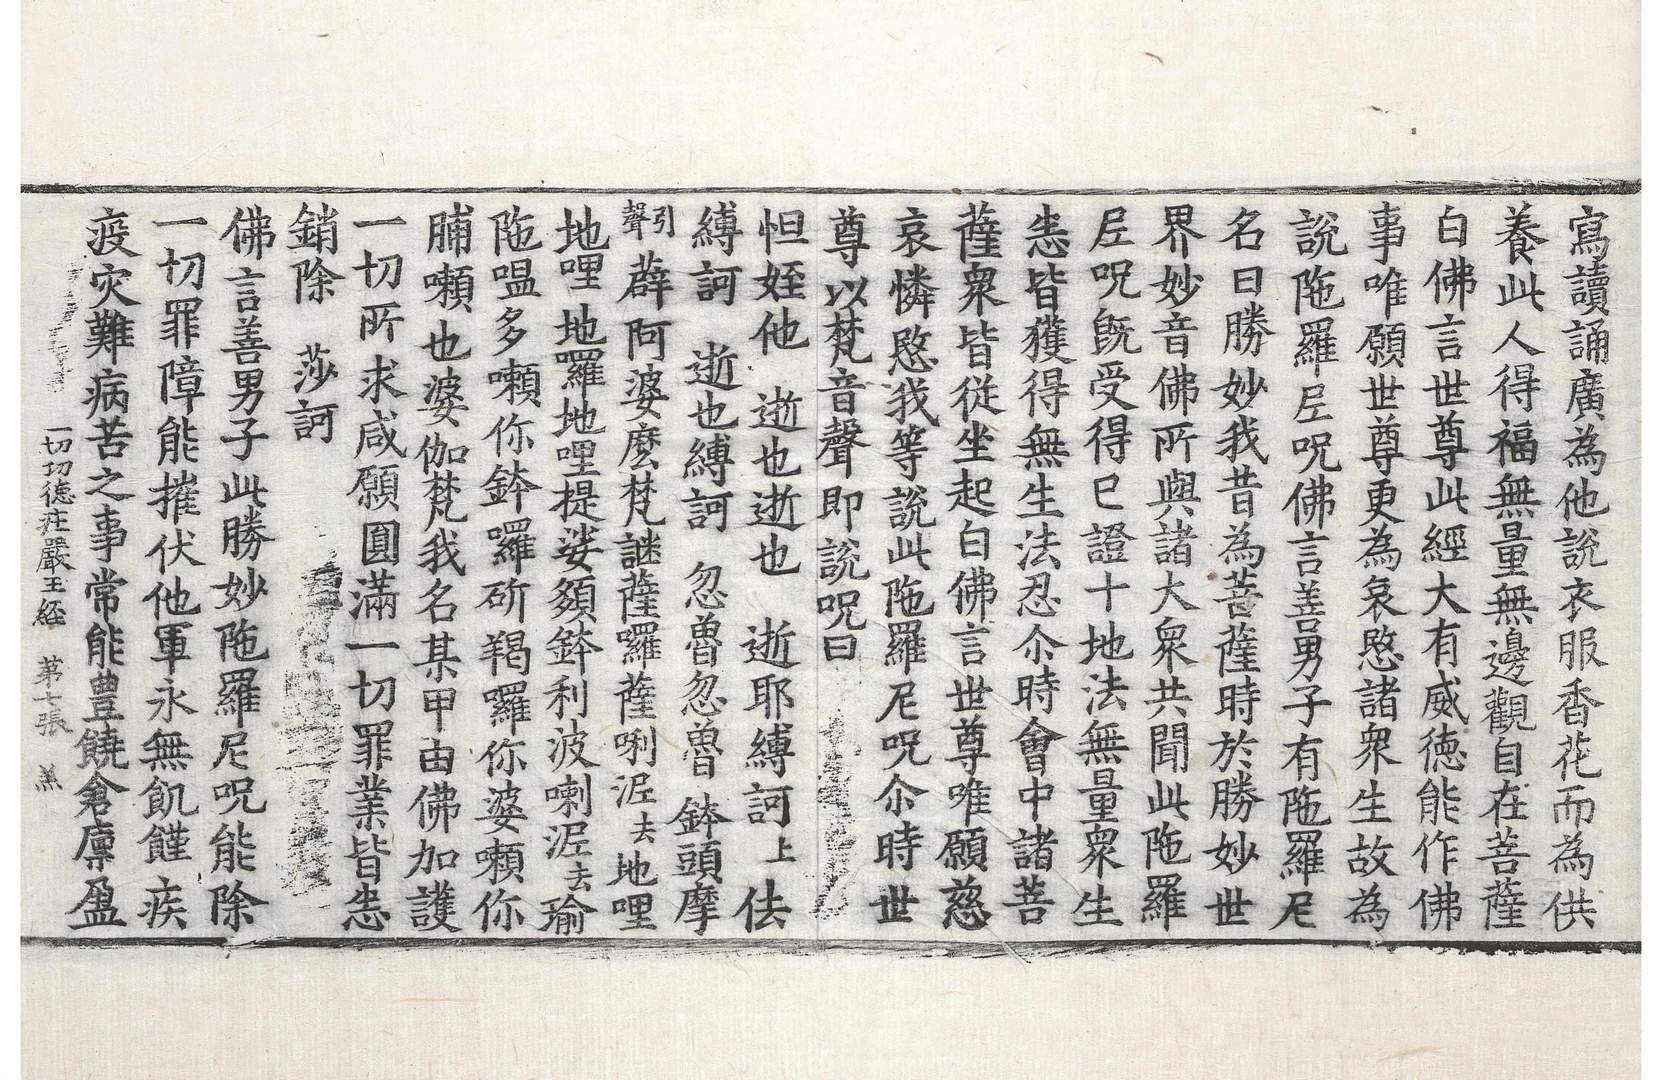 寫讀誦廣為他說衣服香花而為供
養此人得福無量無邊觀自在菩薩
白佛言世尊此經大有威德能作佛
事唯願世尊更為哀愍諸衆生故為
說陁羅尼呪佛言善男子有陁羅尼
名曰勝妙我昔為菩薩時於勝妙世
界妙音佛所與諸大衆共聞此陁羅
尼呪旣受得已證十地法無量衆生
悉皆獲得無生法忍尒時會中諸菩
薩衆皆從坐起白佛言世尊唯願慈
哀憐愍我等說此陁羅尼呪尒時世
尊以梵音聲即說呪曰
怛姪他 逝也逝也 逝耶縛訶上佉
縛訶 逝也縛訶 忽魯忽魯 鉢頭摩
引聲薜阿婆麼梵謎薩囉薩唎泥去地哩
地哩地囉地哩提娑頞鉢利波喇泥去瑜
陁嗢多嚬你鉢囉斫羯囉你婆嚬你
脯嚬也婆伽梵我名某甲由佛加護
一切所求咸願圓滿一切罪業皆悉
銷除 莎訶
佛言善男子此勝妙陁羅尼呪能除
一切罪障能摧伏他軍永無飢饉疾
疫灾難病苦之事常能豊饒倉廩盈
一切切德莊嚴王經 第七張 羔